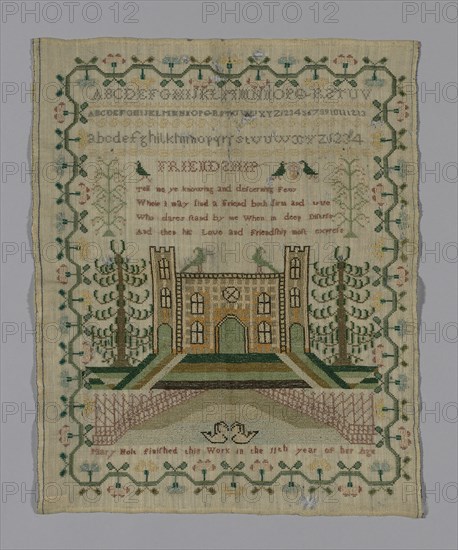 ABCDEFGHIJKLMNOPQRSTUV
ABCDEFGHIJKLMNOPQRSTUVWXYZ123456789101112
abcdefghiklmnopqrſstuvwxyz1234
FRIENDSHIP
Tell me ye knowing and discerning Few
Where I may find a Friend both firm and
Who dares stand by me When in deep
And then his Love and Friendship most express
Mary Holt finished this Work in the 11th year of her Age
PHOTO 12